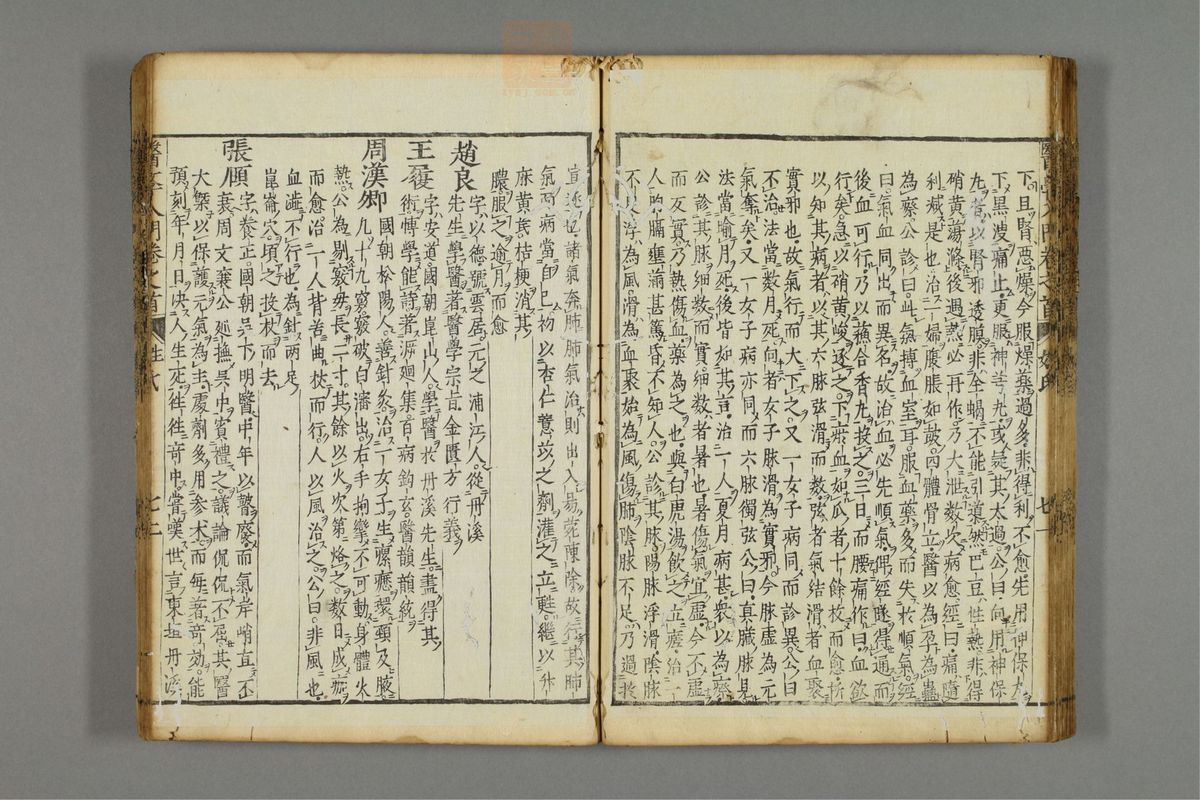 醫學入門卷之首 姓氏 七十一
下且腎惡燥今服燥藥過多非得利不愈先用神保丸
下黑溲痛止更服神芎丸或疑其太過公曰向用神保
丸者以腎邪透膜非全蝎不能引導然巴豆性熱非得
硝黃蕩滌後過熱必再作乃大泄數次病愈經曰痛隨
利減是也治一婦腹脹如鼓四體骨立醫以為孕為蠱
為瘵公診曰此氣搏血室耳服血藥多而失於順氣經
曰氣血同出而異名故治血必先順氣俾經隧得通而
後血可行乃以蘇合香丸投之三日而腰痛作曰血欲
行矣急以硝黃峻逐之下瘀血如瓜者十餘枚而愈所
以知其病者以其六脉弦滑而數弦者氣結滑者血聚
實邪也故氣行而大下之又一女子病同而診異公曰
不治法當數月死向者女子脉滑為實邪今脉虛為元
氣奪矣又一女子病亦同而六脉獨弦公曰真臟脉見
法當踰月死後皆如其言治一人夏月病甚衆以為瘵
公診其脉細數而實細數者暑也暑傷氣宜虛今不虛
而反實乃熱傷血藥為之也與白虎湯飲之立瘥治一
人胸膈壅滿甚篤昏不知人公診其脉陽脉浮滑陰脉
不足浮為風滑為血聚始為風傷肺陰脉不足乃過於
宣逐也諸氣奔肺肺氣治則出入易菀陳除故行其肺
氣而病當自已初以杏仁薏苡之劑灌之立甦繼以升
麻黃芪桔梗消其
膿服之逾月而愈
趙良 字以德號雲居元之浦江人從丹溪
先生學醫著醫學宗旨金匱方衍義
王履 字安道國朝崑山人學醫於丹溪先生盡得其
術博學能詩著泝廻集百病鈎玄醫韻韻統
周漢卿 國朝松陽人善針灸治一女子生瘰癧環頸及腋
凡十九竅竅破白瀋出右手拘攣不可動身體火
熱公為剔竅母長二寸其餘以火次第烙之數日成痂
而愈治一人背苦曲杖而行人以風治之公曰非風也
血澁不行也為針兩足
崑崙穴頃之投杖而去
張頤 字養正國朝吳下明醫中年以瞽廢而氣岸峭直不
衰周文襄公廵撫吳中賓禮之議論侃侃不屈其醫
大槩以保護元氣為主處劑多用參术而每著奇効能
預刻年月日决人生死徃徃奇中嘗嘆世言東垣丹溪
醫學入門卷之首 姓氏 七十二